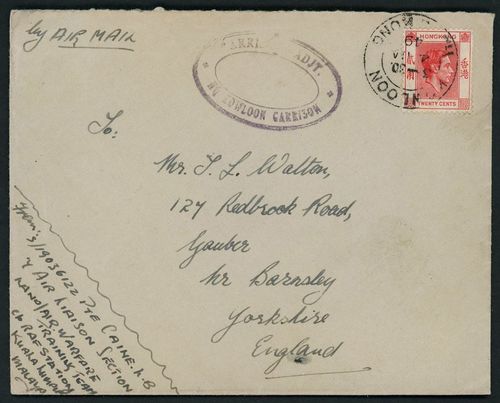 by AIR MAIL
GARRISON ADJT.
HQ KOWLOON GARRISON
KOWLOON
HONG KONG
HONGKONG
香港
TWENTY CENTS
To:
Mr. T. L. Walton,
127 Redbrook Road,
Gauber
Nr Barnsley
Yorkshire
England
From: S/19036122 PTE CAINE. A.B
4 AIR LIAISON SECTION
LAND/AIR WARFARE
TRAINING TEAM
c/o RAF STATION
KUALA LUMPUR
MALAYA